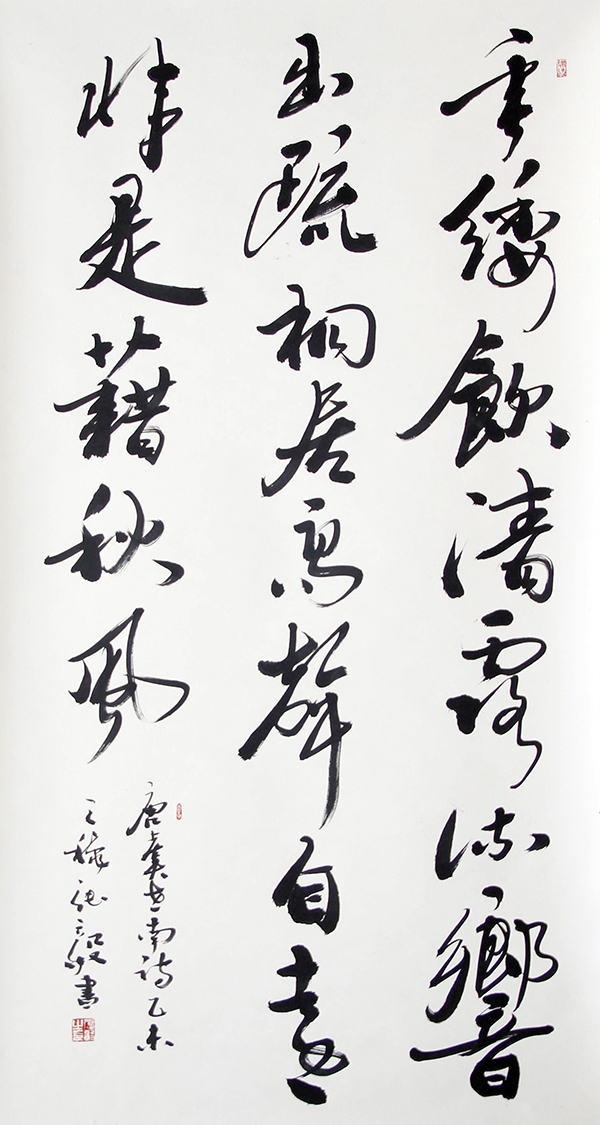 垂緌飲清露流響
出疏桐居高聲自遠
非是藉秋風
唐虞世南詩乙未
之書